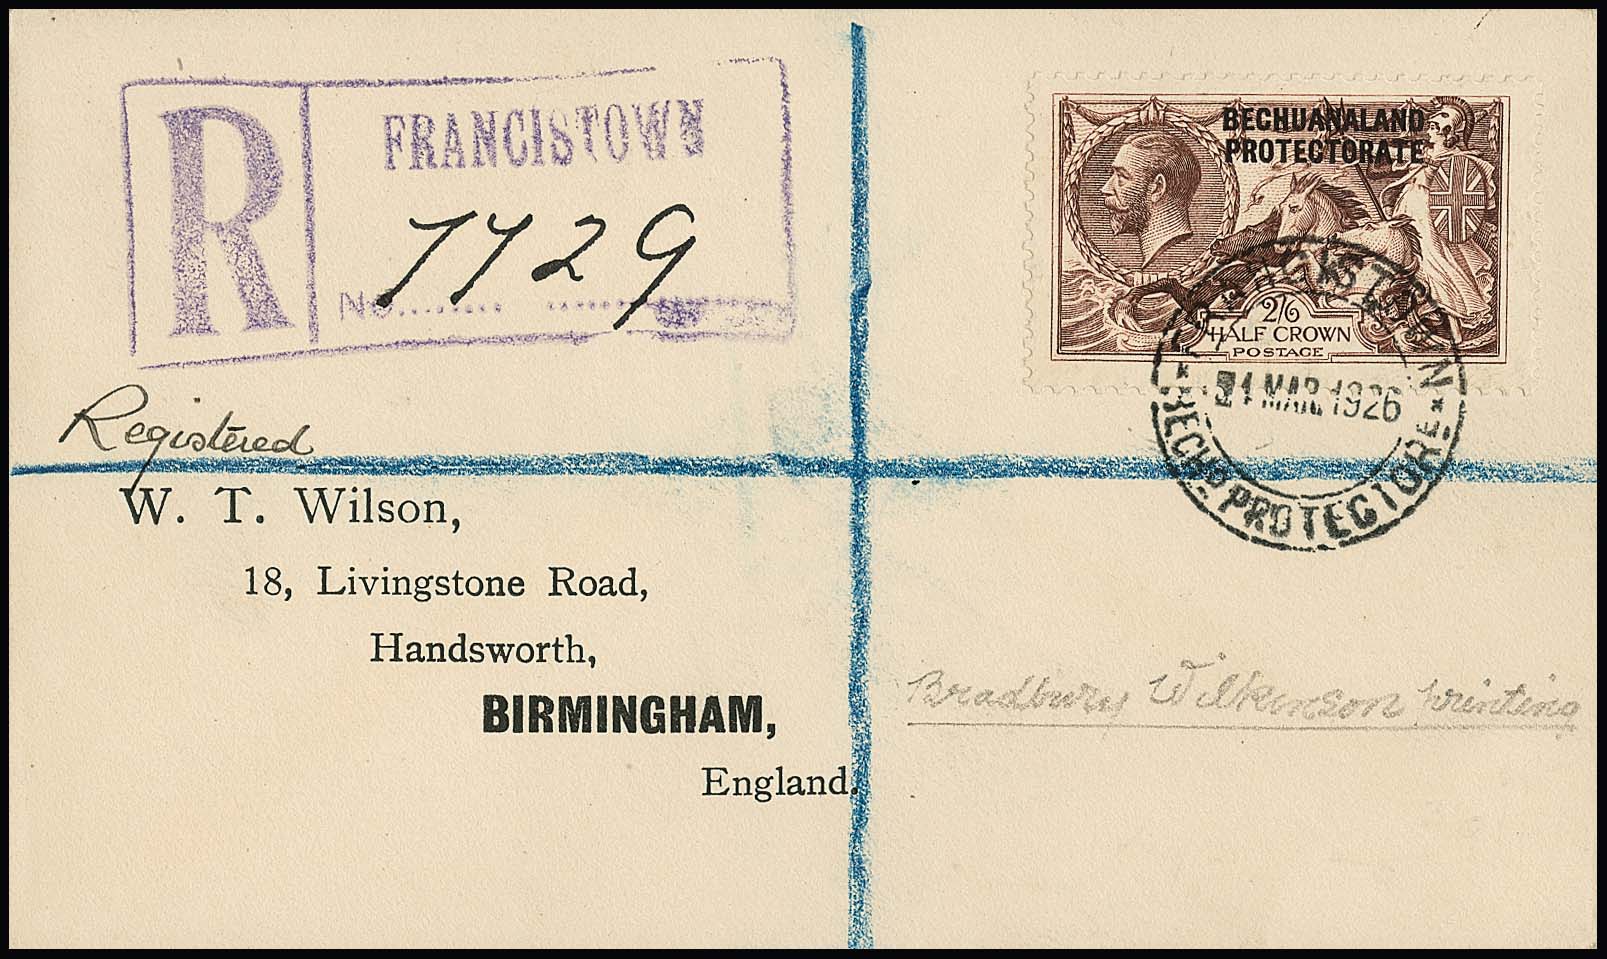 R
FRANCISTOWN
No. 7729
BECHUANALAND
PROTECTORATE
2/6
HALF CROWN
POSTAGE
MAR 1926
BECHD PROTECTORE
Registered
W. T. Wilson,
18, Livingstone Road,
Handsworth,
BIRMINGHAM,
England.
Bradbury Wilkinson Printing